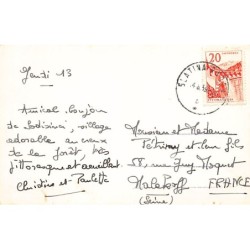 Jeudi 13
Amical bonjour
de            , village
adorable au creux
de la forêt, très
pittoresque et accueillant
Christine et Paulette
Monsieur et Madame
et leur fils
58, rue Guy Moquet
Malakoff
FRANCE
(Seine)
20